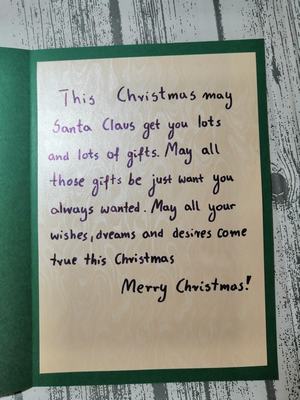 This Christmas may
Santa Claus get you lots
and lots of gifts. May all
those gifts be just want you
always wanted. May all your
wishes, dreams and desires come
true this Christmas
Merry Christmas!